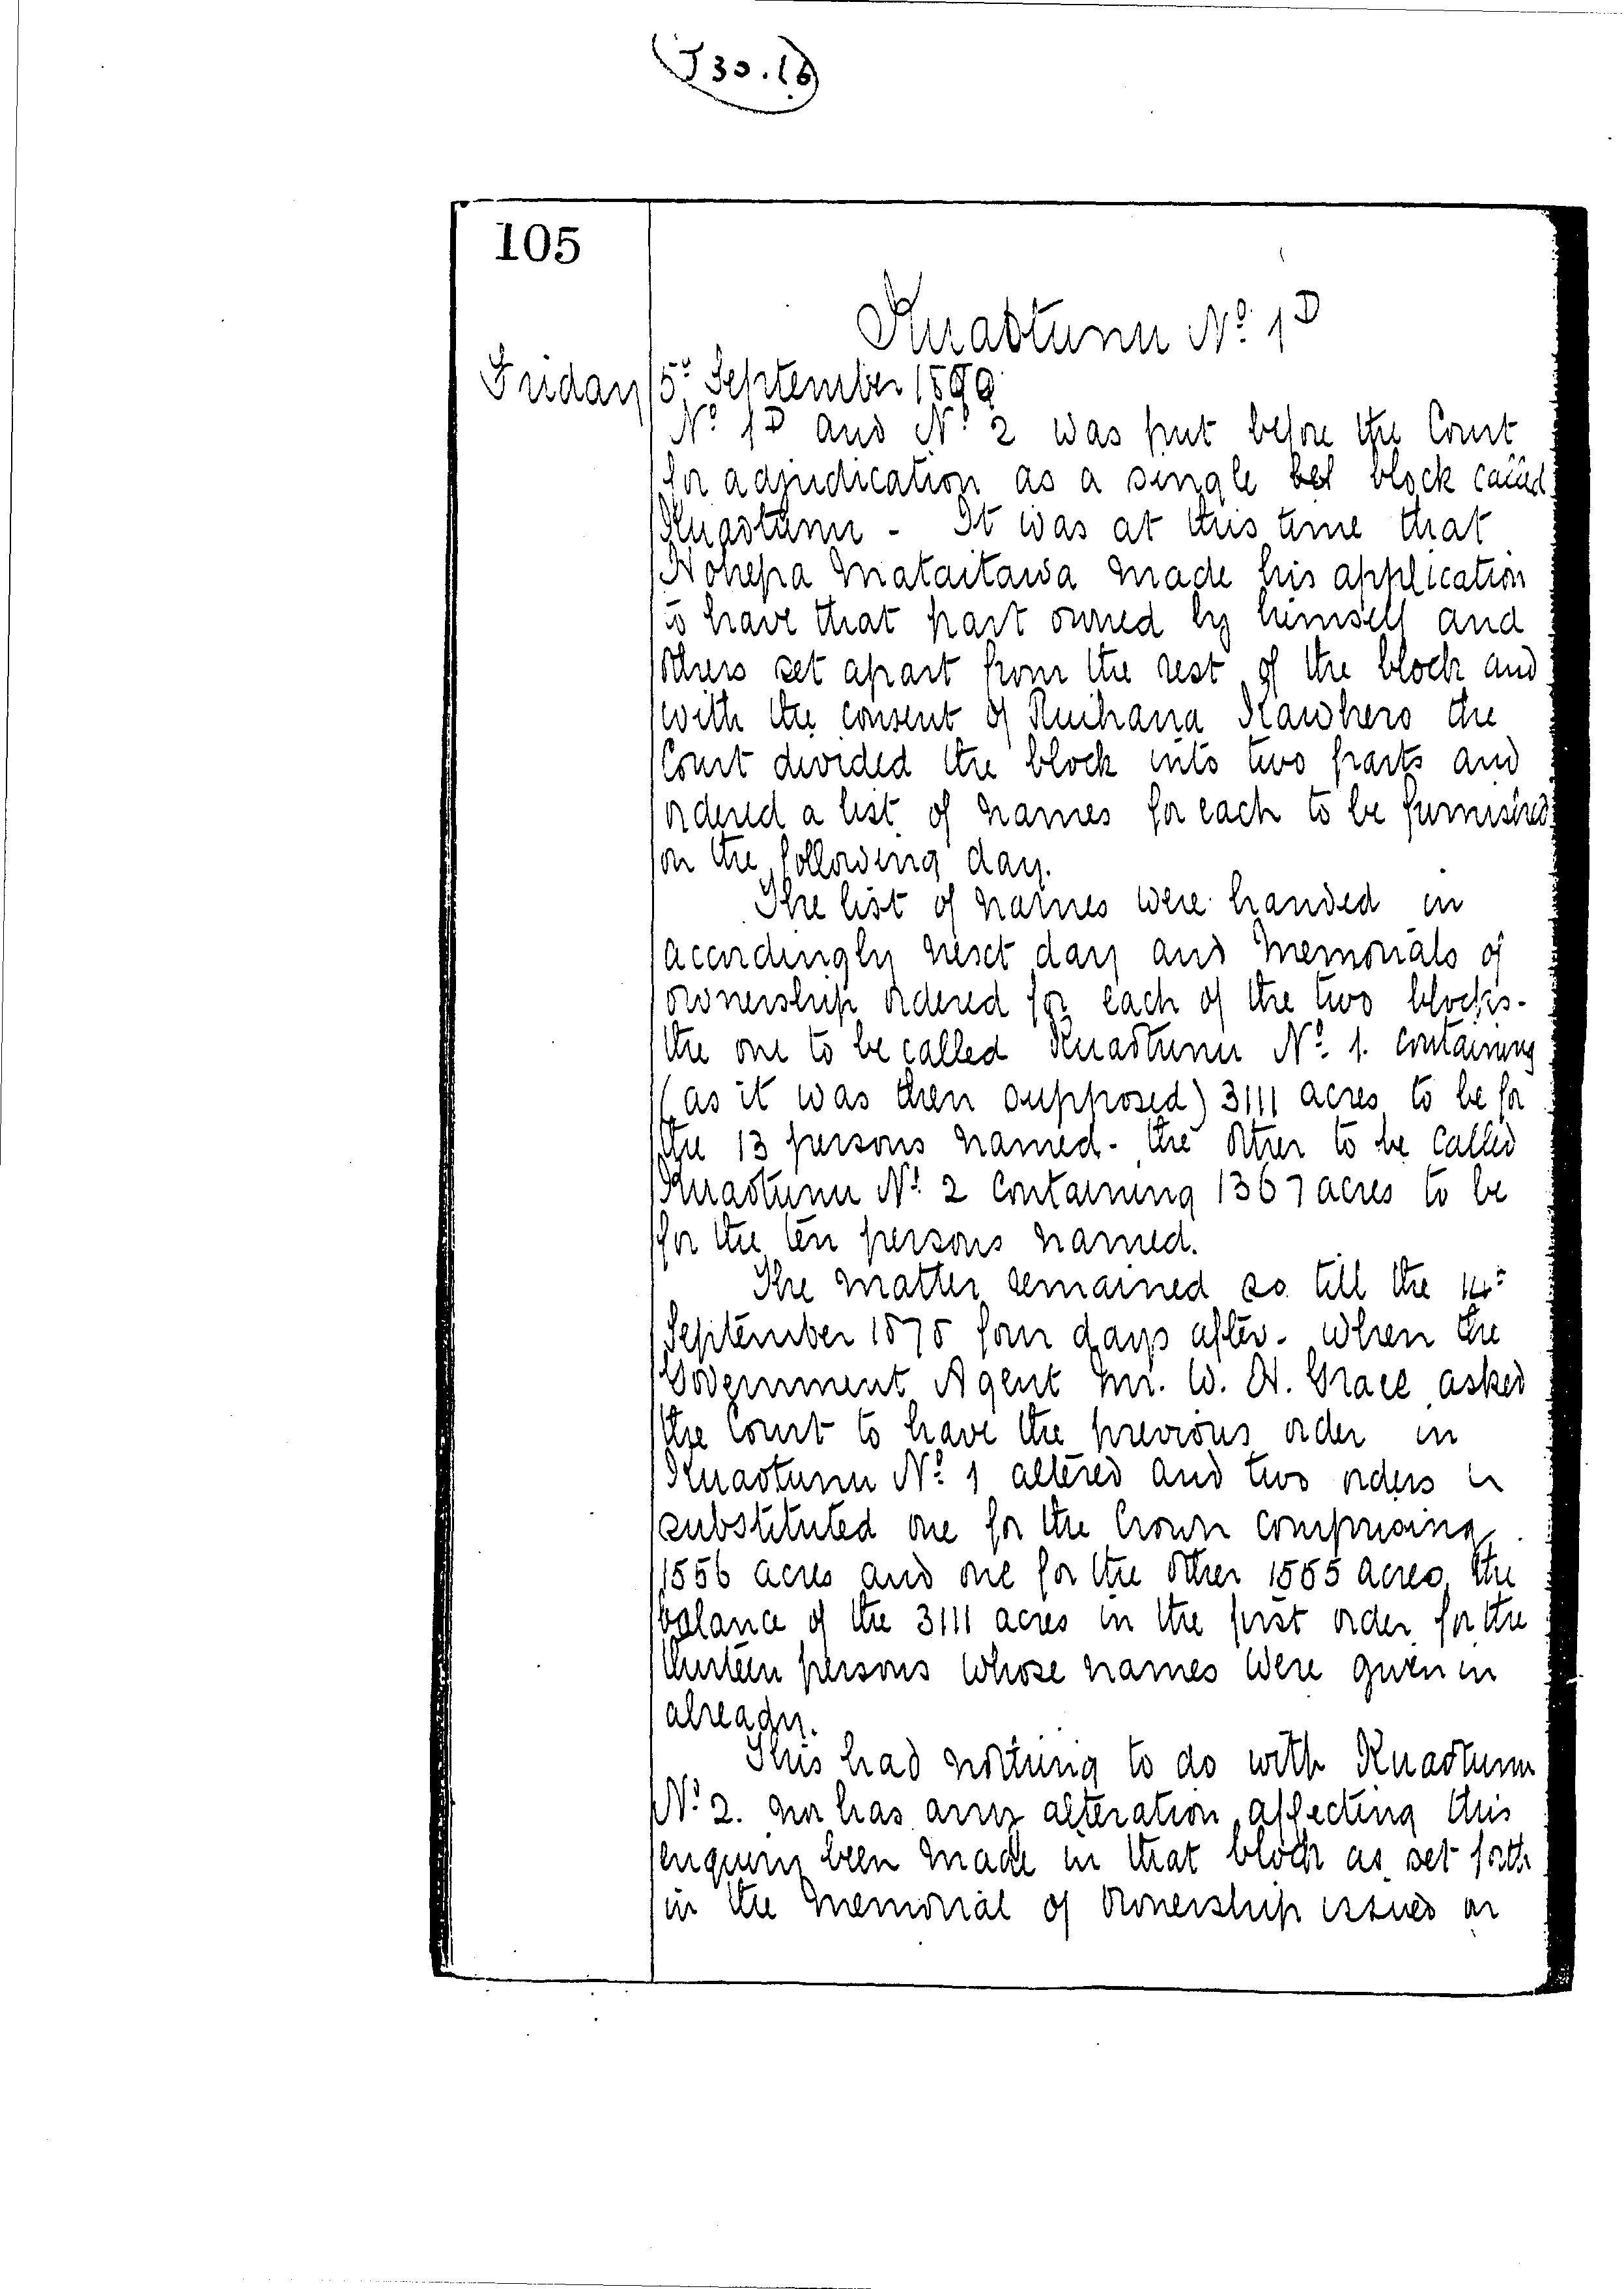 (J 30.16)
105
Kuaotunu No. 1D
Friday 5th September 1890
No. 1D and No. 2 was put before the Court
for adjudication as a single bel block called
Kuaotunu - It was at this time that
Hohepa Mataitawa made his application
to have that part owned by himself and
others set apart from the rest of the block and
with the consent of Ruihana Kawhero the
Court divided the block into two parts and
ordered a list of names for each to be furnished
on the following day.
The list of names were handed in
accordingly next day and Memorials of
ownership ordered for each of the two blocks -
the one to be called Kuaotunu No. 1. containing
(as it was then supposed) 3111 acres to be for
the 13 persons named - the other to be called
Kuaotunu No. 2 containing 1367 acres to be
for the ten persons named.
The matter remained so till the 14th
September 1878 four days after - when the
Government Agent Mr. W. H. Grace asked
the Court to have the previous order in
Kuaotunu No. 1 altered and two orders
substituted one for the Crown comprising
1556 acres and one for the other 1555 acres, the
balance of the 3111 acres in the first order for the
thirteen persons whose names were given in
already.
This had nothing to do with Kuaotunu
No. 2. nor has any alteration affecting this
enquiry been made in that block as set forth
in the Memorial of Ownership issued on